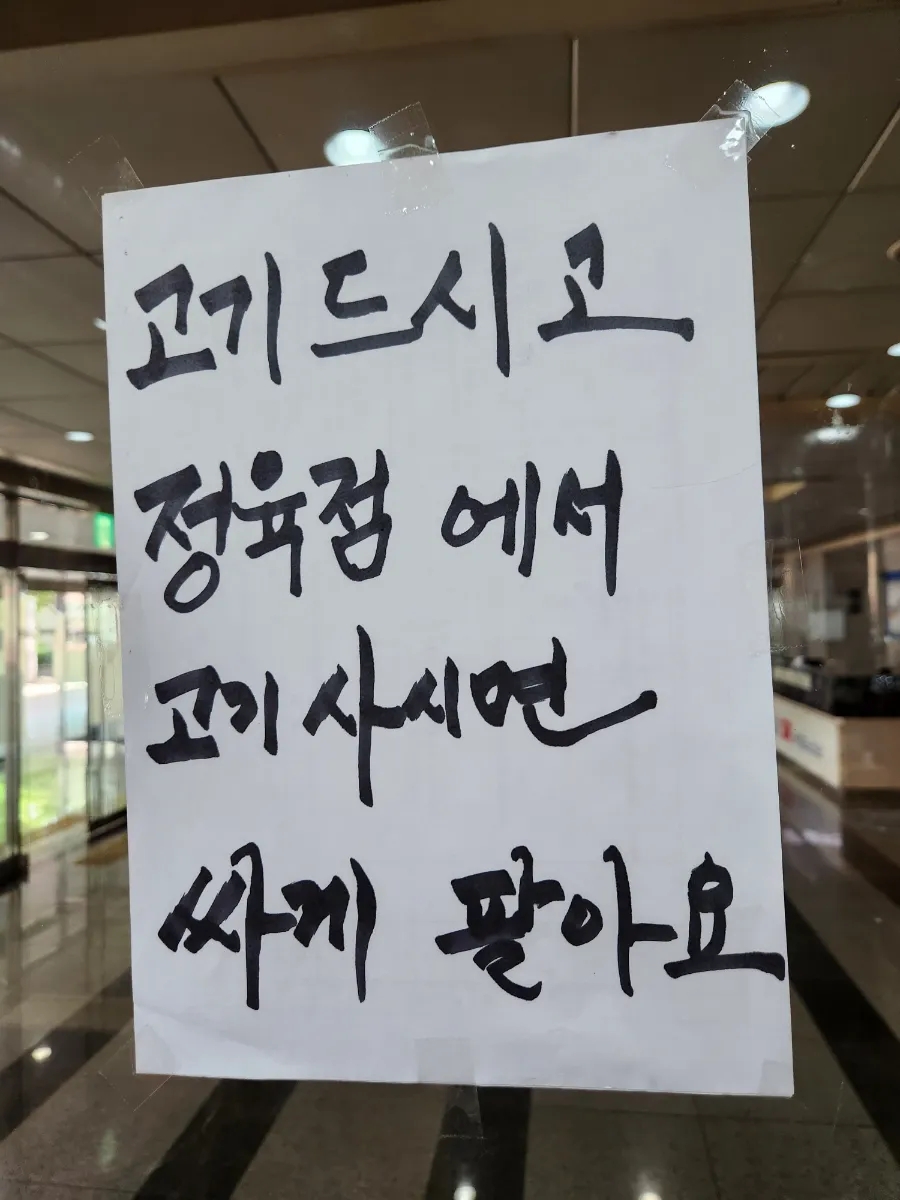 고기드시고
정육점 에서
고기 사시면
싸게 팔아요